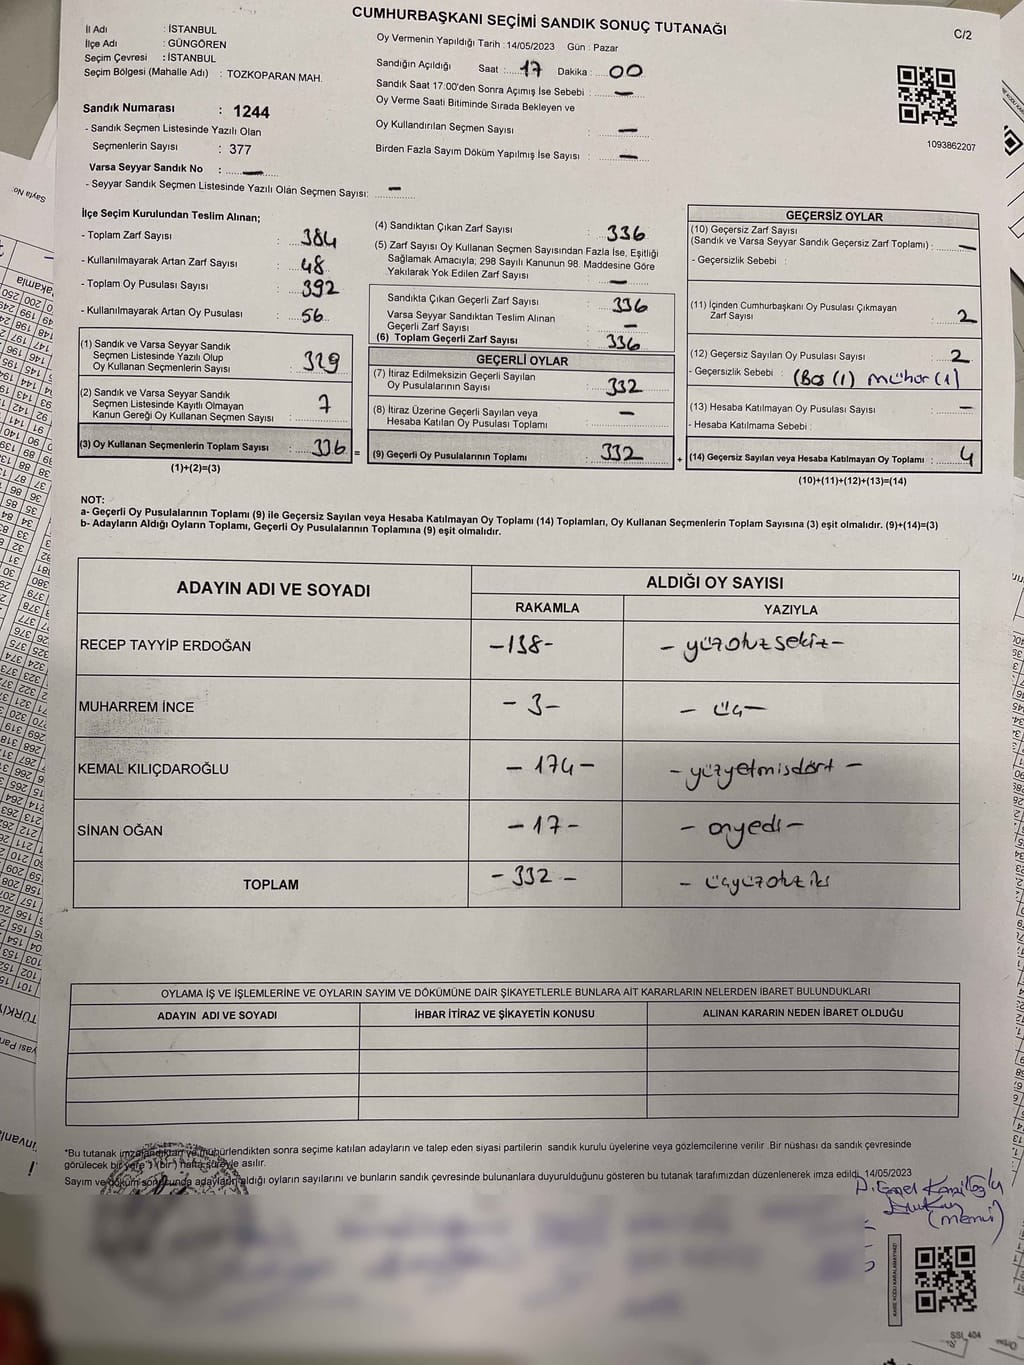 CUMHURBAŞKANI SEÇİMİ SANDIK SONUÇ TUTANAĞI
C/2
İl Adı : İSTANBUL
İlçe Adı : GÜNGÖREN
Seçim Çevresi : İSTANBUL
Seçim Bölgesi (Mahalle Adı) : TOZKOPARAN MAH.
Sandık Numarası : 1244
- Sandık Seçmen Listesinde Yazılı Olan
Seçmenlerin Sayısı : 377
Varsa Seyyar Sandık No : —
- Seyyar Sandık Seçmen Listesinde Yazılı Olan Seçmen Sayısı: —
Oy Vermenin Yapıldığı Tarih :14/05/2023 Gün : Pazar
Sandığın Açıldığı Saat : 17 Dakika : 00
Sandık Saat 17:00'den Sonra Açımış İse Sebebi : —
Oy Verme Saati Bitiminde Sırada Bekleyen ve
Oy Kullandırılan Seçmen Sayısı : —
Birden Fazla Sayım Döküm Yapılmış İse Sayısı : —
1093862207
İlçe Seçim Kurulundan Teslim Alınan;
- Toplam Zarf Sayısı : 384
- Kullanılmayarak Artan Zarf Sayısı : 48
- Toplam Oy Pusulası Sayısı : 392
- Kullanılmayarak Artan Oy Pusulası : 56
(1) Sandık ve Varsa Seyyar Sandık
Seçmen Listesinde Yazılı Olup
Oy Kullanan Seçmenlerin Sayısı : 329
(2) Sandık ve Varsa Seyyar Sandık
Seçmen Listesinde Kayıtlı Olmayan
Kanun Gereği Oy Kullanan Seçmen Sayısı : 7
(3) Oy Kullanan Seçmenlerin Toplam Sayısı : 336 =
(1)+(2)=(3)
(4) Sandıktan Çıkan Zarf Sayısı : 336
(5) Zarf Sayısı Oy Kullanan Seçmen Sayısından Fazla İse, Eşitliği
Sağlamak Amacıyla; 298 Sayılı Kanunun 98. Maddesine Göre
Yakılarak Yok Edilen Zarf Sayısı : —
Sandıkta Çıkan Geçerli Zarf Sayısı : 336
Varsa Seyyar Sandıktan Teslim Alınan
Geçerli Zarf Sayısı : —
(6) Toplam Geçerli Zarf Sayısı : 336
GEÇERLİ OYLAR
(7) İtiraz Edilmeksizin Geçerli Sayılan
Oy Pusulalarının Sayısı : 332
(8) İtiraz Üzerine Geçerli Sayılan veya
Hesaba Katılan Oy Pusulası Toplamı : —
(9) Geçerli Oy Pusulalarının Toplamı : 332 +
GEÇERSİZ OYLAR
(10) Geçersiz Zarf Sayısı
(Sandık ve Varsa Seyyar Sandık Geçersiz Zarf Toplamı) : —
- Geçersizlik Sebebi :
(11) İçinden Cumhurbaşkanı Oy Pusulası Çıkmayan
Zarf Sayısı : 2
(12) Geçersiz Sayılan Oy Pusulası Sayısı : 2
- Geçersizlik Sebebi : (Boş (1) mühür (1)
(13) Hesaba Katılmayan Oy Pusulası Sayısı : —
- Hesaba Katılmama Sebebi :
(14) Geçersiz Sayılan veya Hesaba Katılmayan Oy Toplamı : 4
(10)+(11)+(12)+(13)=(14)
NOT:
a- Geçerli Oy Pusulalarının Toplamı (9) ile Geçersiz Sayılan veya Hesaba Katılmayan Oy Toplamı (14) Toplamları, Oy Kullanan Seçmenlerin Toplam Sayısına (3) eşit olmalıdır. (9)+(14)=(3)
b- Adayların Aldığı Oyların Toplamı, Geçerli Oy Pusulalarının Toplamına (9) eşit olmalıdır.
ADAYIN ADI VE SOYADI
ALDIĞI OY SAYISI
RAKAMLA YAZIYLA
RECEP TAYYİP ERDOĞAN -138- - yüzotuzsekiz -
MUHARREM İNCE - 3 - - üç -
KEMAL KILIÇDAROĞLU - 174 - - yüzyetmişdört -
SİNAN OĞAN - 17 - - onyedi -
TOPLAM - 332 - - üçyüzotuz iki
OYLAMA İŞ VE İŞLEMLERİNE VE OYLARIN SAYIM VE DÖKÜMÜNE DAİR ŞİKAYETLERLE BUNLARA AİT KARARLARIN NELERDEN İBARET BULUNDUKLARI
ADAYIN ADI VE SOYADI İHBAR İTİRAZ VE ŞİKAYETİN KONUSU ALINAN KARARIN NEDEN İBARET OLDUĞU
*Bu tutanak imzalandıktan ve mühürlendikten sonra seçime katılan adayların ve talep eden siyasi partilerin sandık kurulu üyelerine veya gözlemcilerine verilir. Bir nüshası da sandık çevresinde
görülecek bir yere 1 (bir) hafta süreyle asılır.
Sayım ve döküm sonucunda adayların aldığı oyların sayılarını ve bunların sandık çevresinde bulunanlara duyurulduğunu gösteren bu tutanak tarafımızdan düzenlenerek imza edildi. 14/05/2023
SSI_404